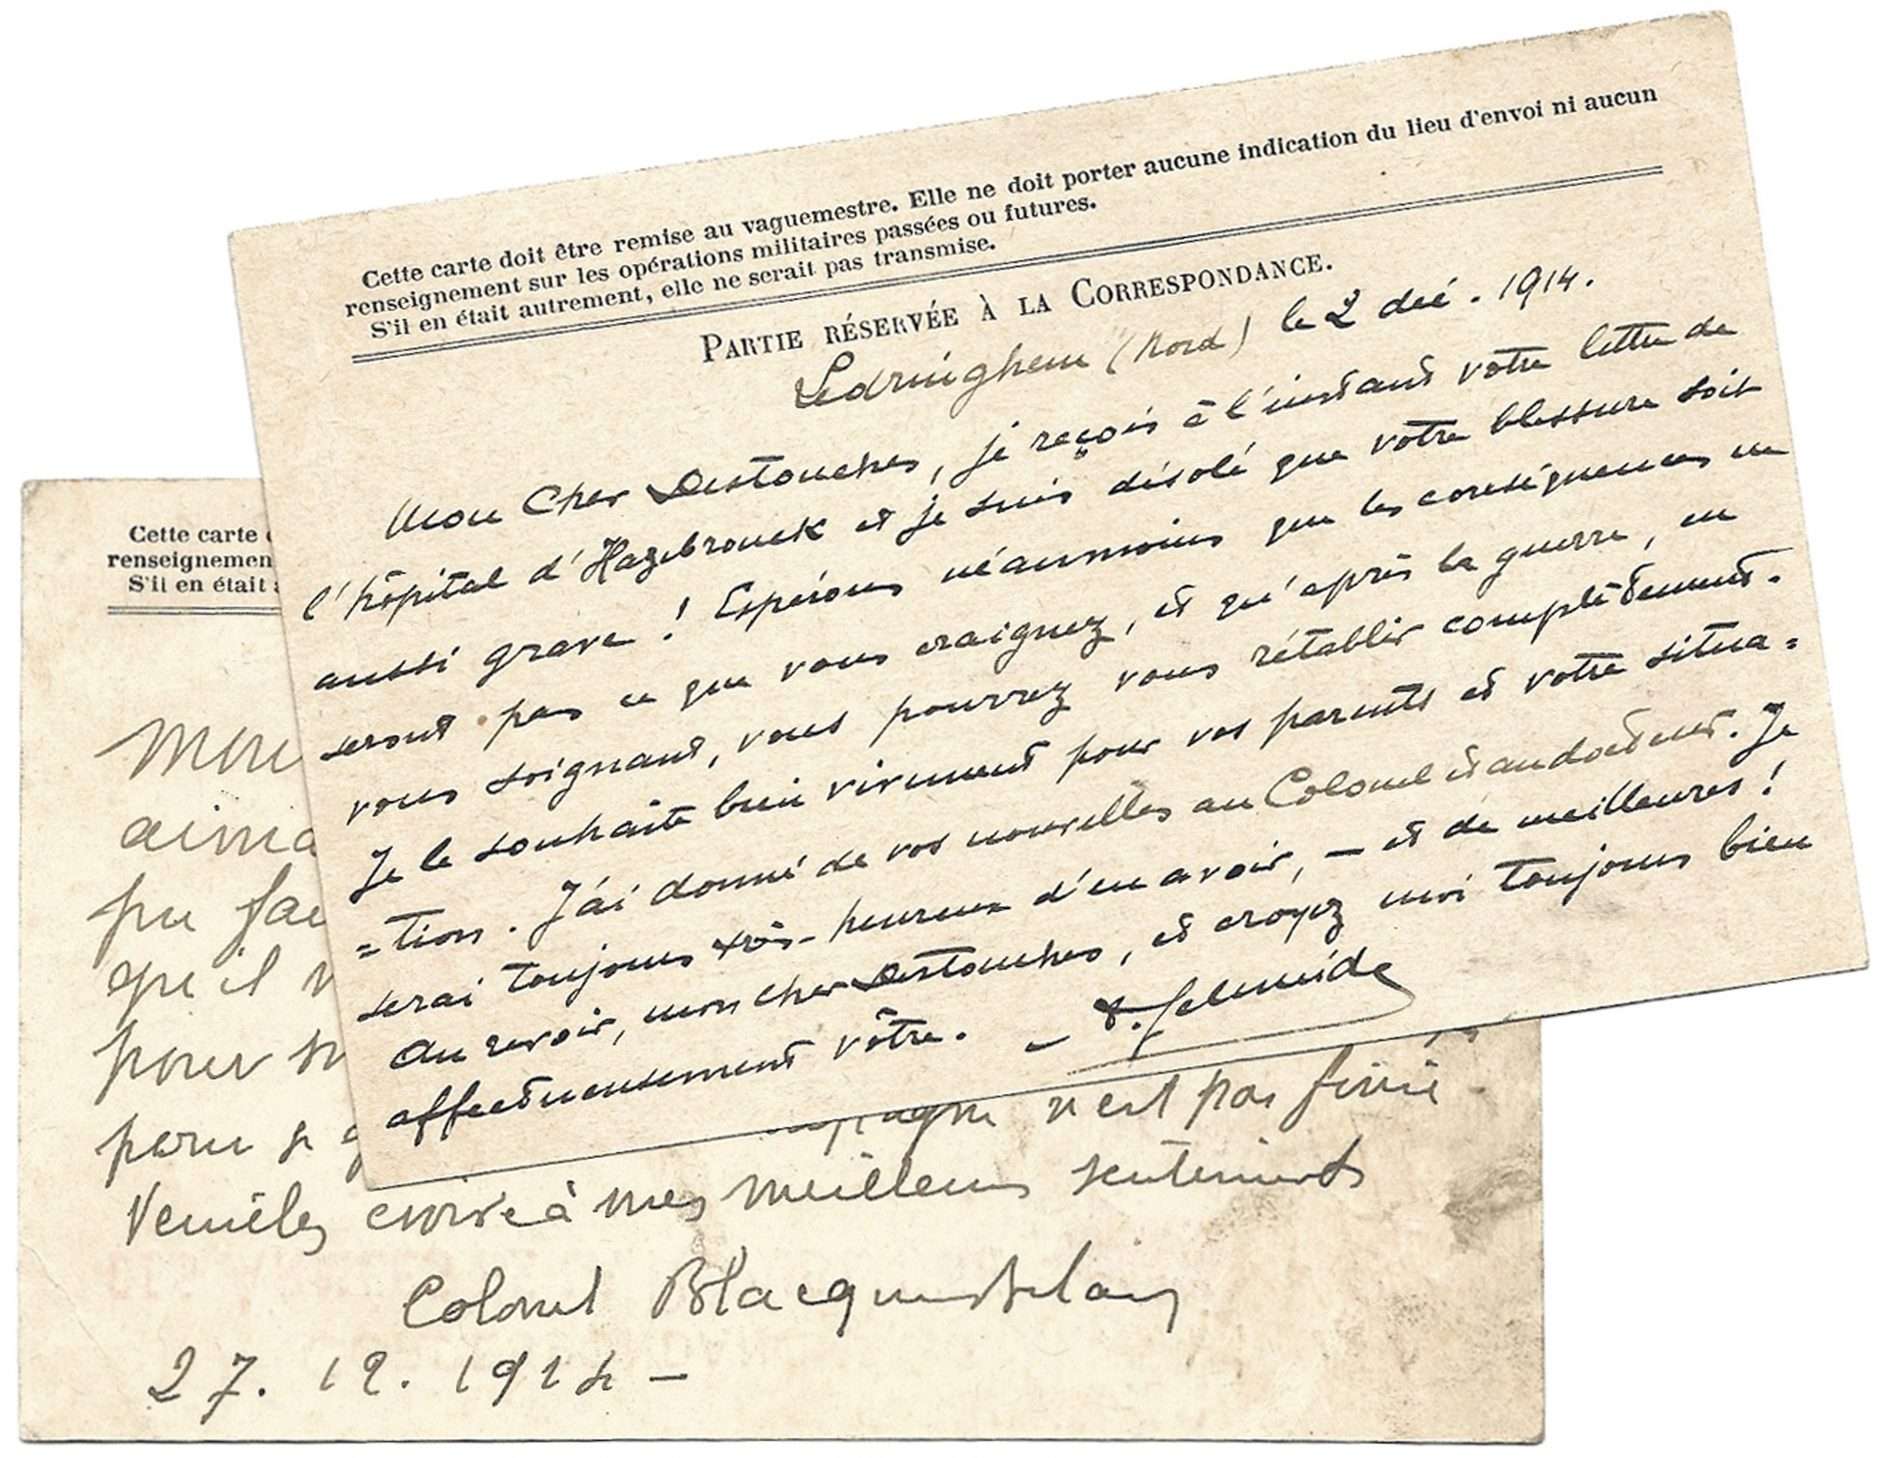 Cette carte doit être remise au vaguemestre. Elle ne doit porter aucune indication du lieu d'envoi ni aucun
renseignement sur les opérations militaires passées ou futures.
S'il en était autrement, elle ne serait pas transmise.
PARTIE RÉSERVÉE À LA CORRESPONDANCE.
Ledringhem (Nord) le 2 déc. 1914.
Mon Cher Destouches, je reçois à l'instant votre lettre de
l'hôpital d'Hazebrouck et je suis désolé que votre blessure soit
aussi grave ! Espérons néanmoins que les conséquences ne
seront pas ce que vous craignez, et qu'après la guerre, en
vous soignant, vous pourrez vous rétablir complètement.
Je le souhaite bien vivement pour vos parents et votre situa=
=tion. J'ai donné de vos nouvelles au Colonel et au docteur. Je
serai toujours très-heureux d'en avoir, — et de meilleures !
Au revoir, mon cher Destouches, et croyez moi toujours bien
affectueusement vôtre. —
Cette carte
renseignemen
S'il en était
Mon
aima
pu fai
qu'il
pour
peru
n'est pas finie
Veuillez croire à mes meilleurs sentiments
Colonel
27. 12. 1914 —